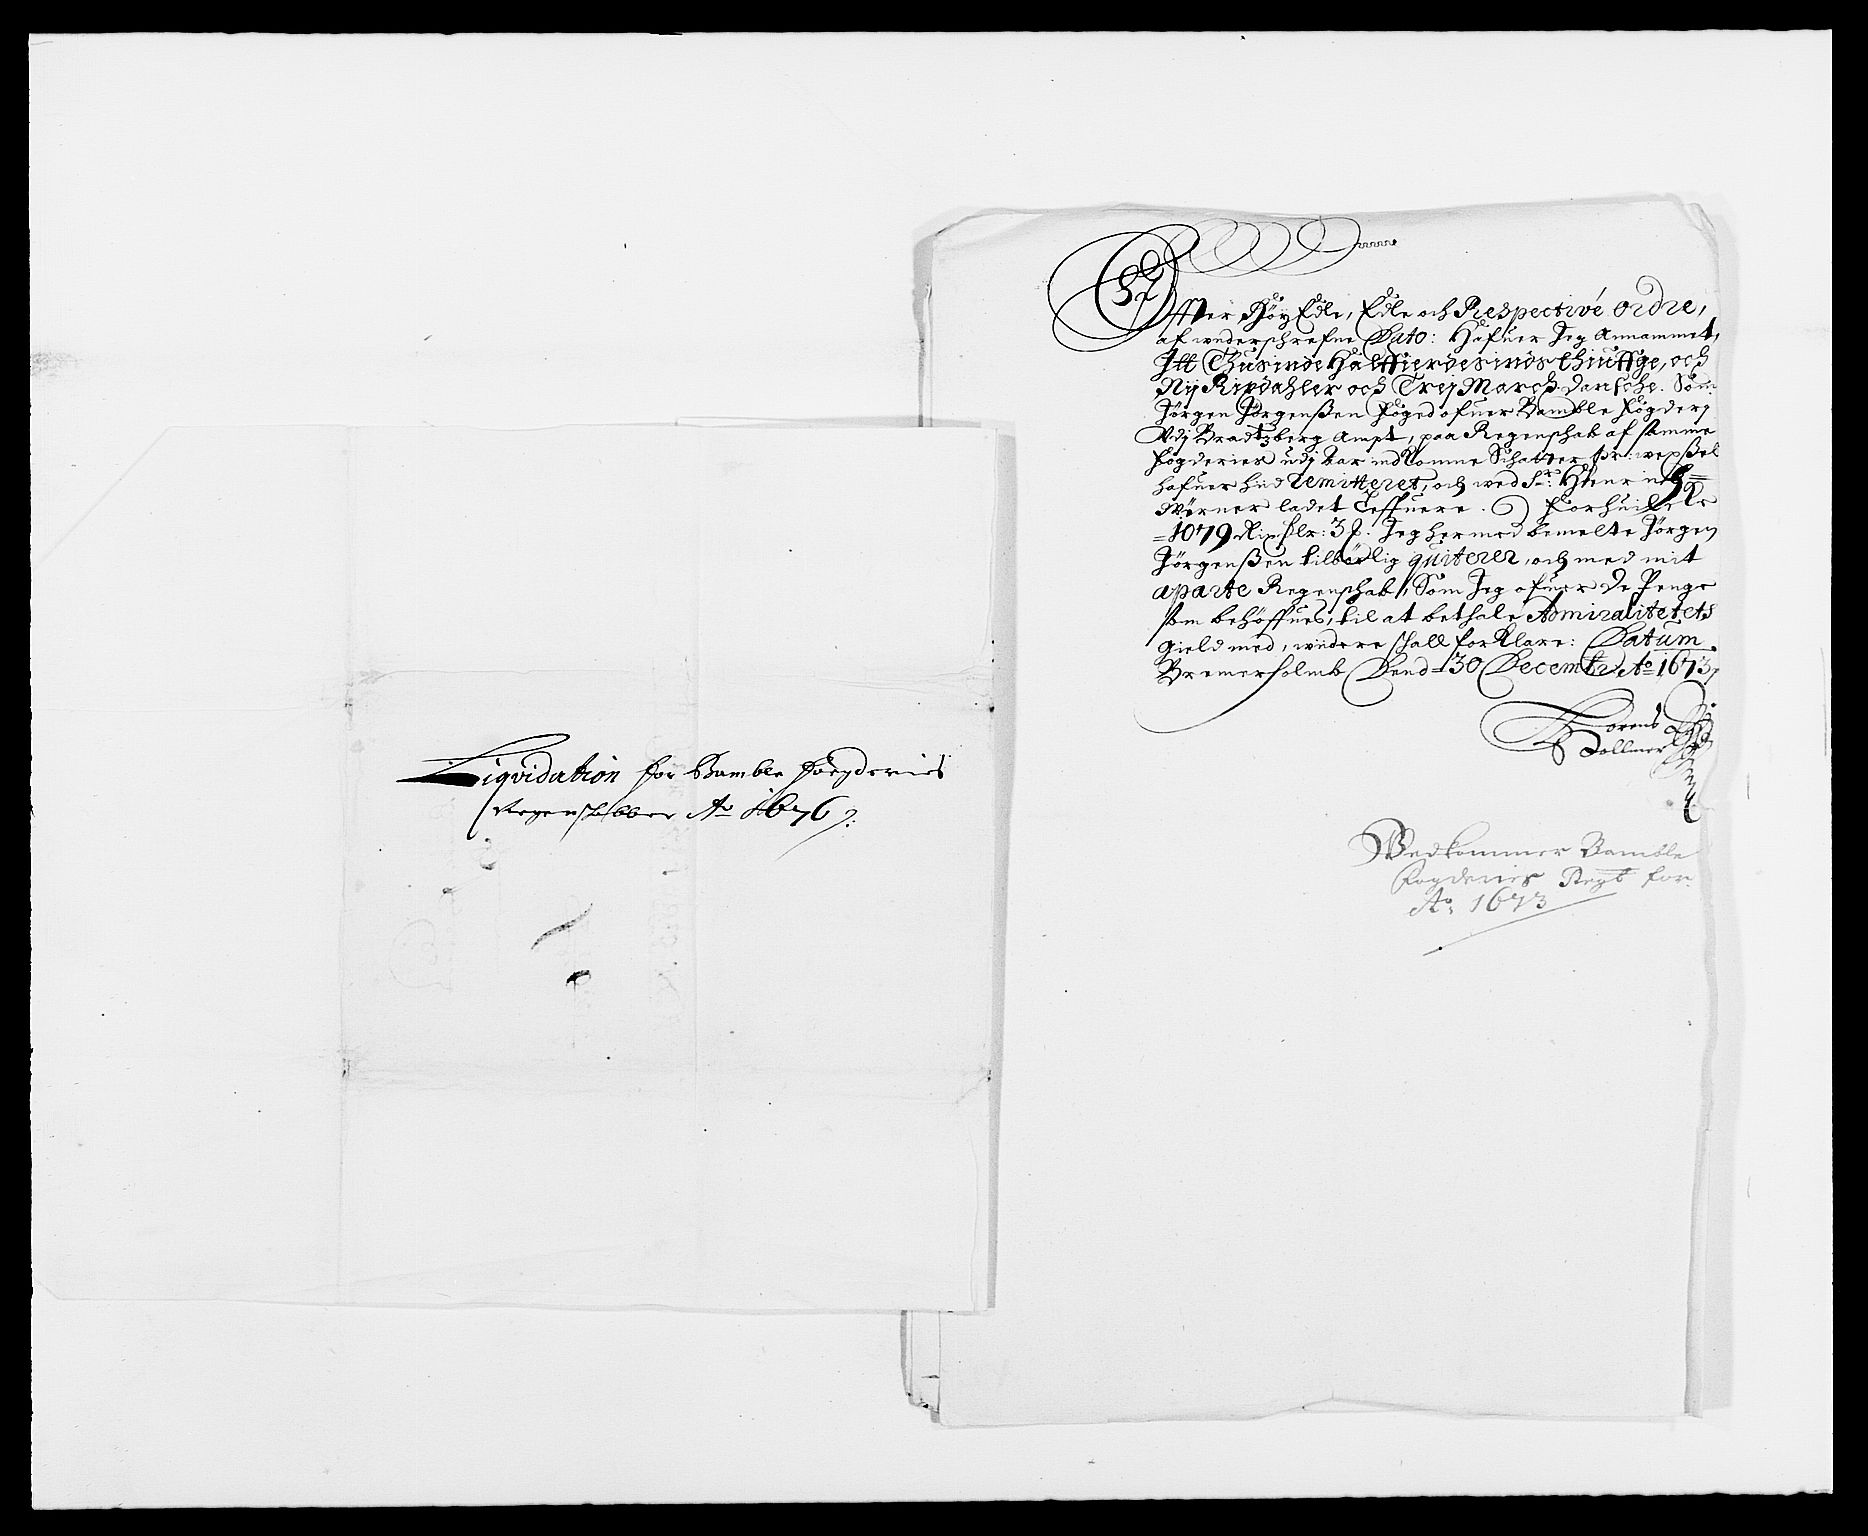 Liqvidation for Bamble fougderies
Regenskabber Ao 1676
Effter Höy Edle, Edle och Respectivè ordre,
af underschrefne Dato: Hafuer Jeg Annammet,
Itt Thusinde Halffierdesinds thiuffge, och
Nij Rixdahler och Trej March dansche. Som
Jörgen Jörgenßen foged ofuer Bamble fögderj
Vdj Bradtzberg Ampt, paa Regenschab af samme
fögderies udj bar indkomme Schatter pr: wexßel
hafuer hid remitteret, och wed Sr: Henrich
Wörner ladet leffuere. Forhuilcke
=1079 Rixdlr: 3 Jeg hermed bemelte Jörgen
Jörgenßen tilbörlig quiterer, och med mit
aparte Regenschab, Som Jeg ofuer de Penge
som behöffues, til at bethale Admiralitetets
gield med, widere schall forklare: Datum
Bremerholmb Dend 30 Decembr Ao 1673
Lorens
Vedkommer Bamble
fogderies Regb for
Ao 1673